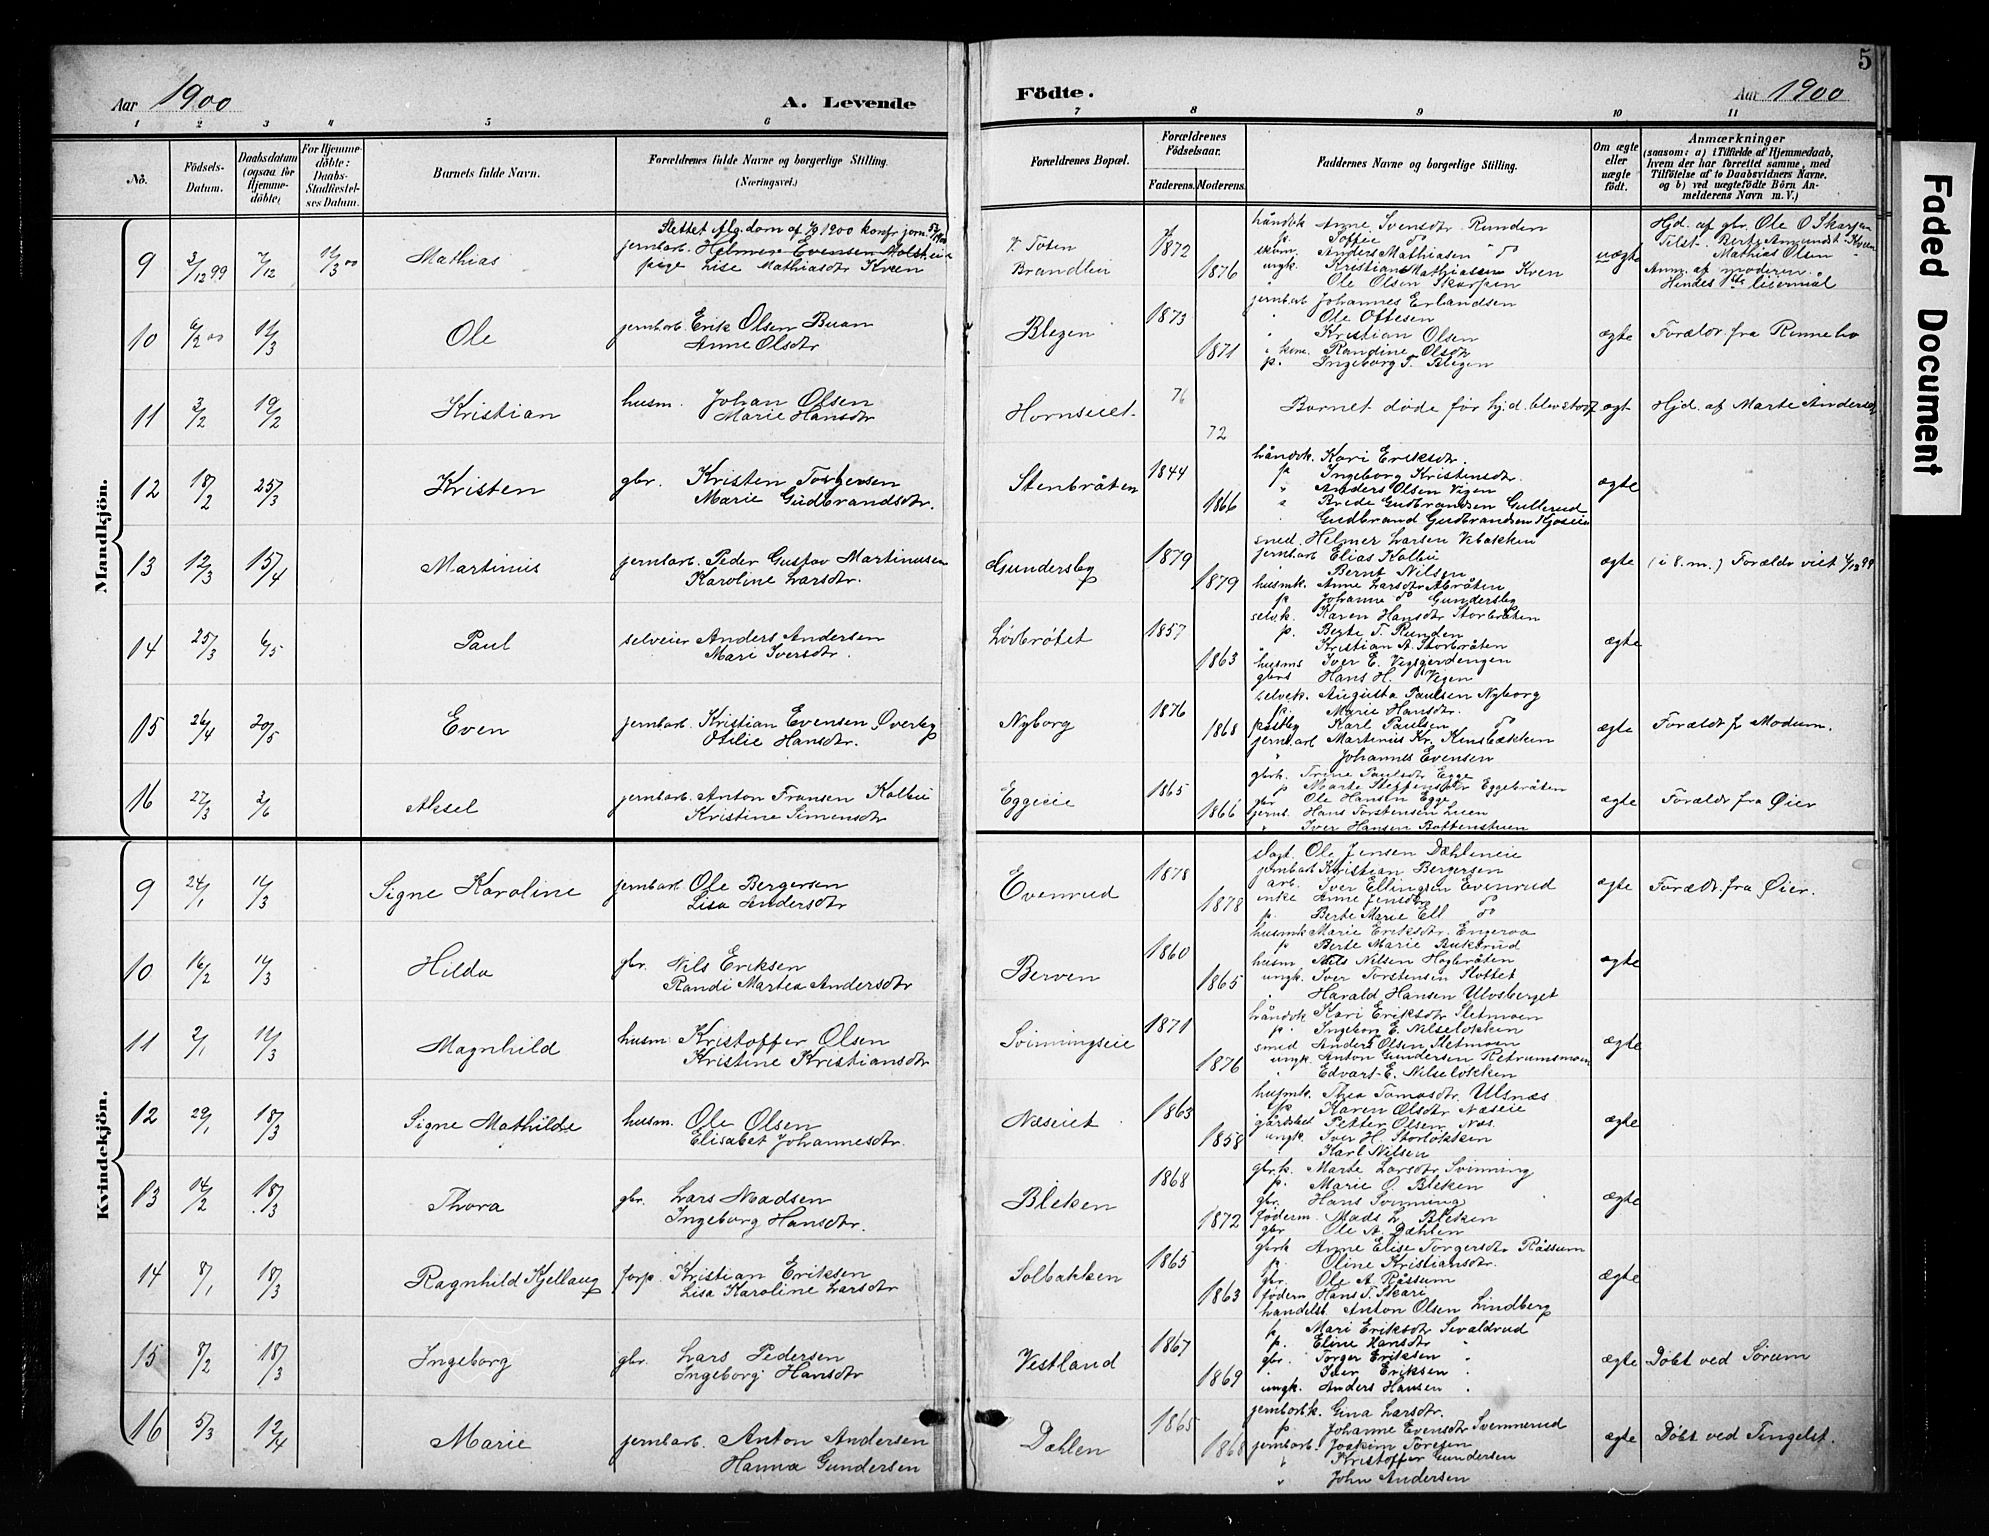 5
Aar 1900
A. Levende
Födte.
Aar 1900
1 2 3 4 5 6 7 8 9 10 11
No.
Födsels-Datum.
Daabsdatum (ogsaa for Hjemmedöbte)
For Hjemmedöbte: Daabs-Stadfæstelses Datum.
Barnets fulde Navn.
Forældrenes fulde Navne og borgerlige Stilling. (Næringsvei.)
Forældrenes Bopæl.
Forældrenes Födselsaar.
Faderens. Moderens.
Faddernes Navne og borgerlige Stilling.
Om ægte eller uægte födt.
Anmærkninger
(saasom: a) i Tilfælde af Hjemmedaab, hvem der har forrettet samme, med Tilföielse af to Daabsvidners Navne. og b) ved uægtefödte Börn Anmelderens Navn m. V.)
Mandkjön.
9 3/12 99 7/12 11/3 00 Mathias
jernbarb. Helmer Evensen
pige Lise Mathiasdtr Kveen
V. Toten
Brandlien
1872
1876
håndvk Anne Svensdtr Runden
p. Soffie do
Anders Mathiasen do
ungk. Kristian Mathiasen Kven
Ole Olsen Skarpen
uægte
Hjd. af gbr. Ole O Skarpen
Mathias Olsen
Anm. af moderen.
Hendes 1ste leiermål
10 6/2 00 11/3 Ole
jernbarb Erik Olsen Buan
Anne Olsdtr
Blegen
1873
1871
jernbarb Johannes Erlandsen
" Ole Oftesen
" Kristian Olsen
" kone. Randine Olsdtr
p. Ingeborg T. Blegen
ægte
Forældr. fra Rennebo
11 3/2 19/2 Kristian
husm. Johan Olsen
Marie Hansdtr
Hornseiet
76
72
Barnet døde før hjd. blev stadf
ægt
Hjd. af Marte Andersdtr
12 18/2 25/3 Kristen
gbr. Kristen Torgersen
Marie Gudbrandsdtr.
Stenbråten
1844
1866
håndvk. Kari Eriksdtr.
p Ingeborg Kristensdtr.
" Anders Olsen Vigen
" Brede Gudbrandsen Gullerud
Gudbrand Gudbrandsen Kjoseie
ægte
13 12/3 15/4 Martinius
jernbarb. Peder Gustav Martinusen
Karoline Larsdtr.
Gundersby
1879
1879
smed. Helmer Larsen Vebakken
jernbarb Elias Kolbu
Bernt Nilsen
husmk. Anne Larsdtr Åbråten
p. Johanne do Gundersby
ægte
(i 8. m.) Forældr viet 4/12 99
14 25/3 6/5 Paul
selveier Anders Andersen
Mari Iversdtr.
Lövbråtet
1857
1863
selvk. Karen Hansdtr Storbråten
p. Berte T. Runden
" Kristian A. Storbråten
husms Iver E. Vigsgerdengen
gbrs Hans H. Vigen
ægte
15 26/4 20/5 Even
jernbarb. Kristian Evensen Øverby
Otilie Hansdtr.
Nyborg
1876
1868
selvek. Augusta Paulsen Nyborg
p. Marie Hansdtr.
Karl Paulsen do
jernbarb Martinius Kr. Kinsbækken
" Johannes Evensen
ægte
Forældr f. Modum.
16 27/3 3/6 Aksel
jernbarb. Anton Fransen Kolbu
Kristine Simensdtr
Eggeeie
1865
1866
gbrk. Trine Paulsdtr Egge
p Marte Steffensdtr Eggebråten
gbr Ole Hansen Egge
jernb. Hans Torstensen Luen
" Iver Hansen Bottenstuen
ægte
Forældr fra Øier
Kvindekjön.
9 24/1 11/3 Signe Karoline
jernbarb Ole Bergersen
Lisa Andersdtr
Evenrud
1878
1878
Ole Jensen Dæhleneie
jernbarb Kristian Bergersen
arb. Iver Ellingsen Evenrud
enke Anne Jensdtr do
p. Berte Marie Ell. do
ægte
Forældr. fra Øier.
10 16/2 11/3 Hilda
gbr. Nils Eriksen
Randi Martea Andersdtr
Berven
1860
1865
husmk Marie Eriksdtr. Engeroa
p Berte Marie Bukerud
husm Nils Nilsen Høgbråten
ungk. Iver Torstensen Slottet
" Harald Hansen Ulvsberget
ægte
11 2/1 11/3 Magnhild
husm. Kristoffer Olsen
Kristine Kristiansdtr
Svinningseie
1871
1876
håndvk Kari Eriksdtr Sletmoen
p. Ingebor E. Nilseløkken
smed Anders Olsen Sletmoen
ungk. Anton Gundersen Retrumsmoen
" Edvart E. Nilseløkken
ægte
12 29/1 18/3 Signe Mathilde
husm. Ole Olsen
Elisabet Johannesdtr.
Næseiet
1863
1858
husmk. Thea Tomasdtr. Ulsnæs
p Karen Olsdtr Næseie
Petter Olsen Næs.
ungk. Iver H. Storløkken
" Karl Nilsen
ægte
13 14/2 18/3 Thora
gbr. Lars Madsen
Ingeborg Hansdtr.
Bleken
1868
1872
gbrk. Marte Larsdtr Svinning
p. Marie O. Bleken
gbr. Hans Svinning
föderm. Mads L. Bleken
gbr Ole A. Dæhlen
ægte
14 8/1 18/3 Ragnhild Kjellaug
forp. Kristian Eriksen
Lisa Karoline Larsdtr
Solbakken
1865
1863
gbrk Anne Elise Torgersdtr Råssum
p. Oline Kristiansdtr.
gbr. Ole A. Råssum
föderm Hans T. Skari
handelsb. Anton Olsen Lindberg
ægte
15 8/2 18/3 Ingeborg
gbr. Lars Pedersen
Ingeborg Hansdtr
Vestland
1867
1869
p Mari Eriksdtr Sevaldrud
p. Eline Hansdtr "
gbr. Torger Eriksen "
" Iver Eriksen "
ungk. Anders Hansen "
ægte
Döbt ved Sørum
16 5/3 12/4 Marie
jernbarb. Anton Andersen
Hanna Gundersen
Dæhlen
1865
1868
jernbarbk. Gina Larsdtr.
p Johanne Evensdtr Svennerud
jernbarb. Joakim Toresen
" Kristoffer Gundersen
" John Andersen
ægte
Döbt ved Tingelst.
Faded Document